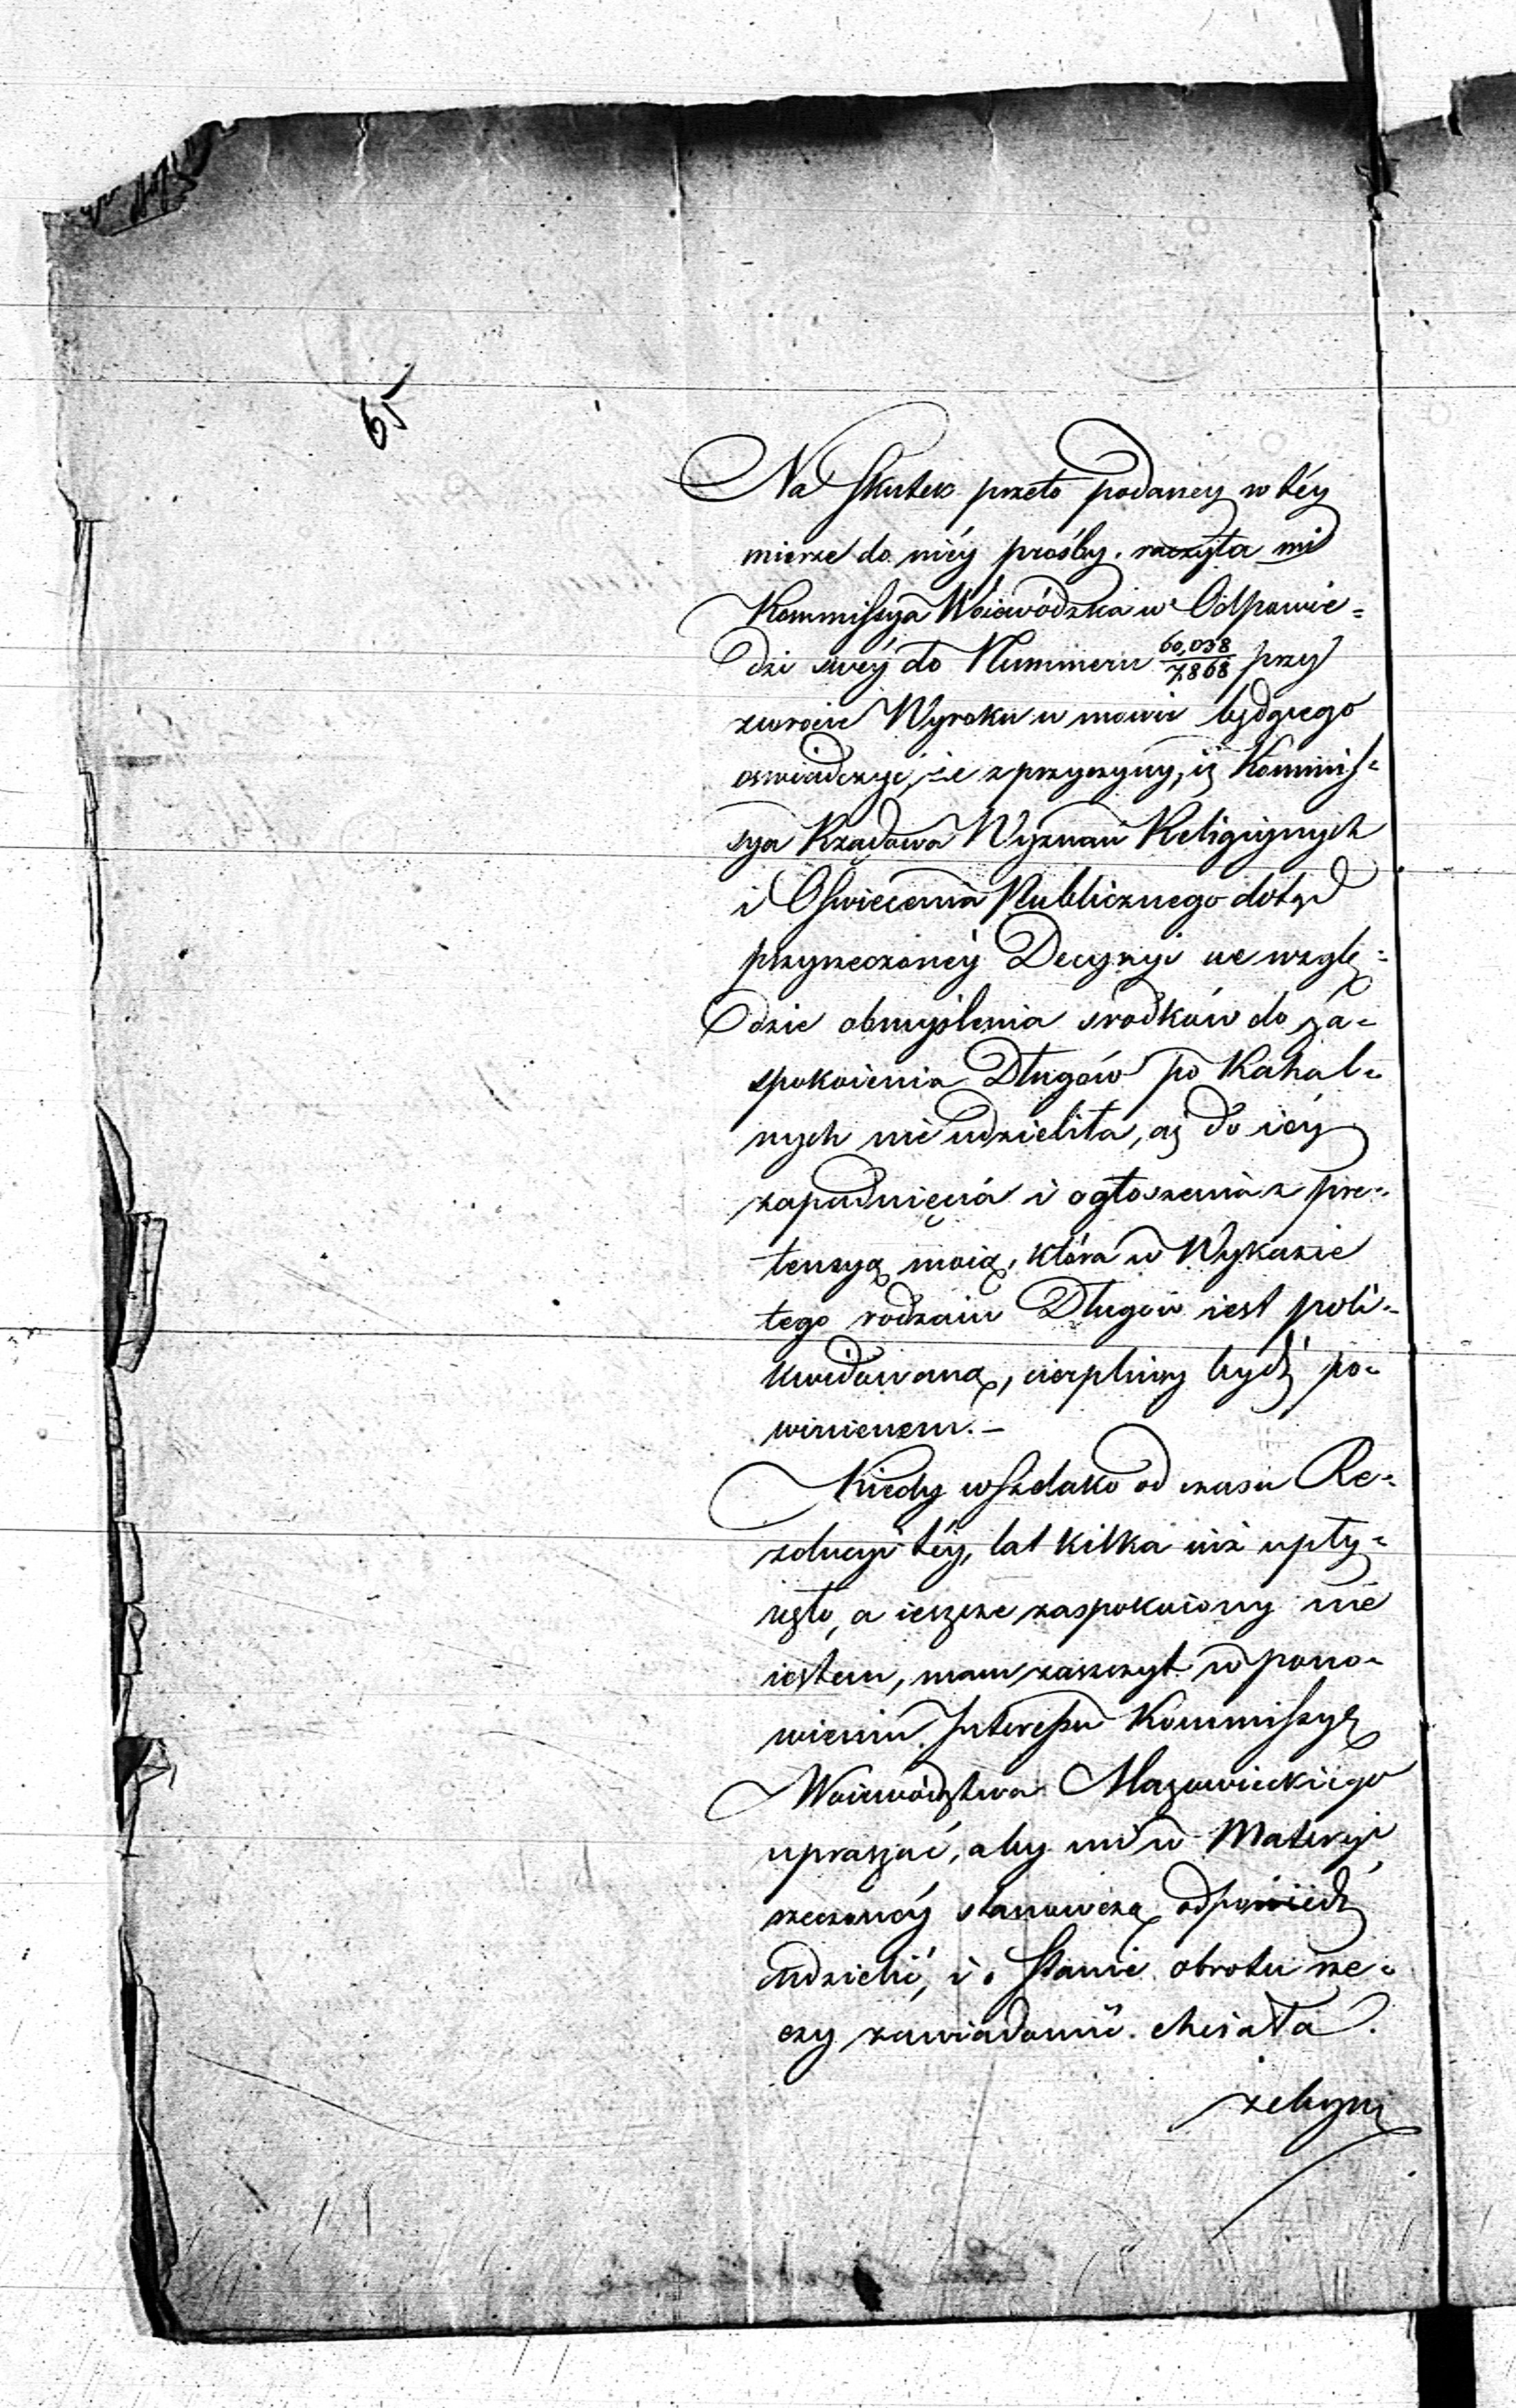 65
Na Skutek przeto podaney w téy
mierze do niéy prośby. raczyła mi
Kommissya Woiewódzka w Odpowie=
dzi swéy do Nummeru 60,038/7868 przy
zwrocie Wyroku w mowie będącego
oswiadczyć, że z przyczyny, iż Kommis=
sya Rządowa Wyznań Religiynych
i Oświecenia Publicznego dotąd
przyrzeczonéy Decyzyi we wzglę=
dzie obmyślenia srodków do za=
spokoienia Długów po Kahal=
nych nie udzieliła, aż do iéy
zapadnięcia i ogłoszenia z pre=
tensyą moią, która w Wykazie
tego rodzaiu Długów iest poli=
kwidowaną, cierpliwy bydź po=
winienem. –
Kiedy wszelako od czasu Re=
zolucyi téy, lat kilka iuż upły=
nęło, a ieszcze zaspokoiony nie
iestem, mam zaszczyt w pono=
wieniu Interessu Kommissyę
Woiewództwa Mazowieckiego
upraszać, aby mi w Materyi
rzeczonéy stanowczą odpowiedź
udzielić, i o Stanie obrotu rze=
czy zawiadomić chciała.
żebym